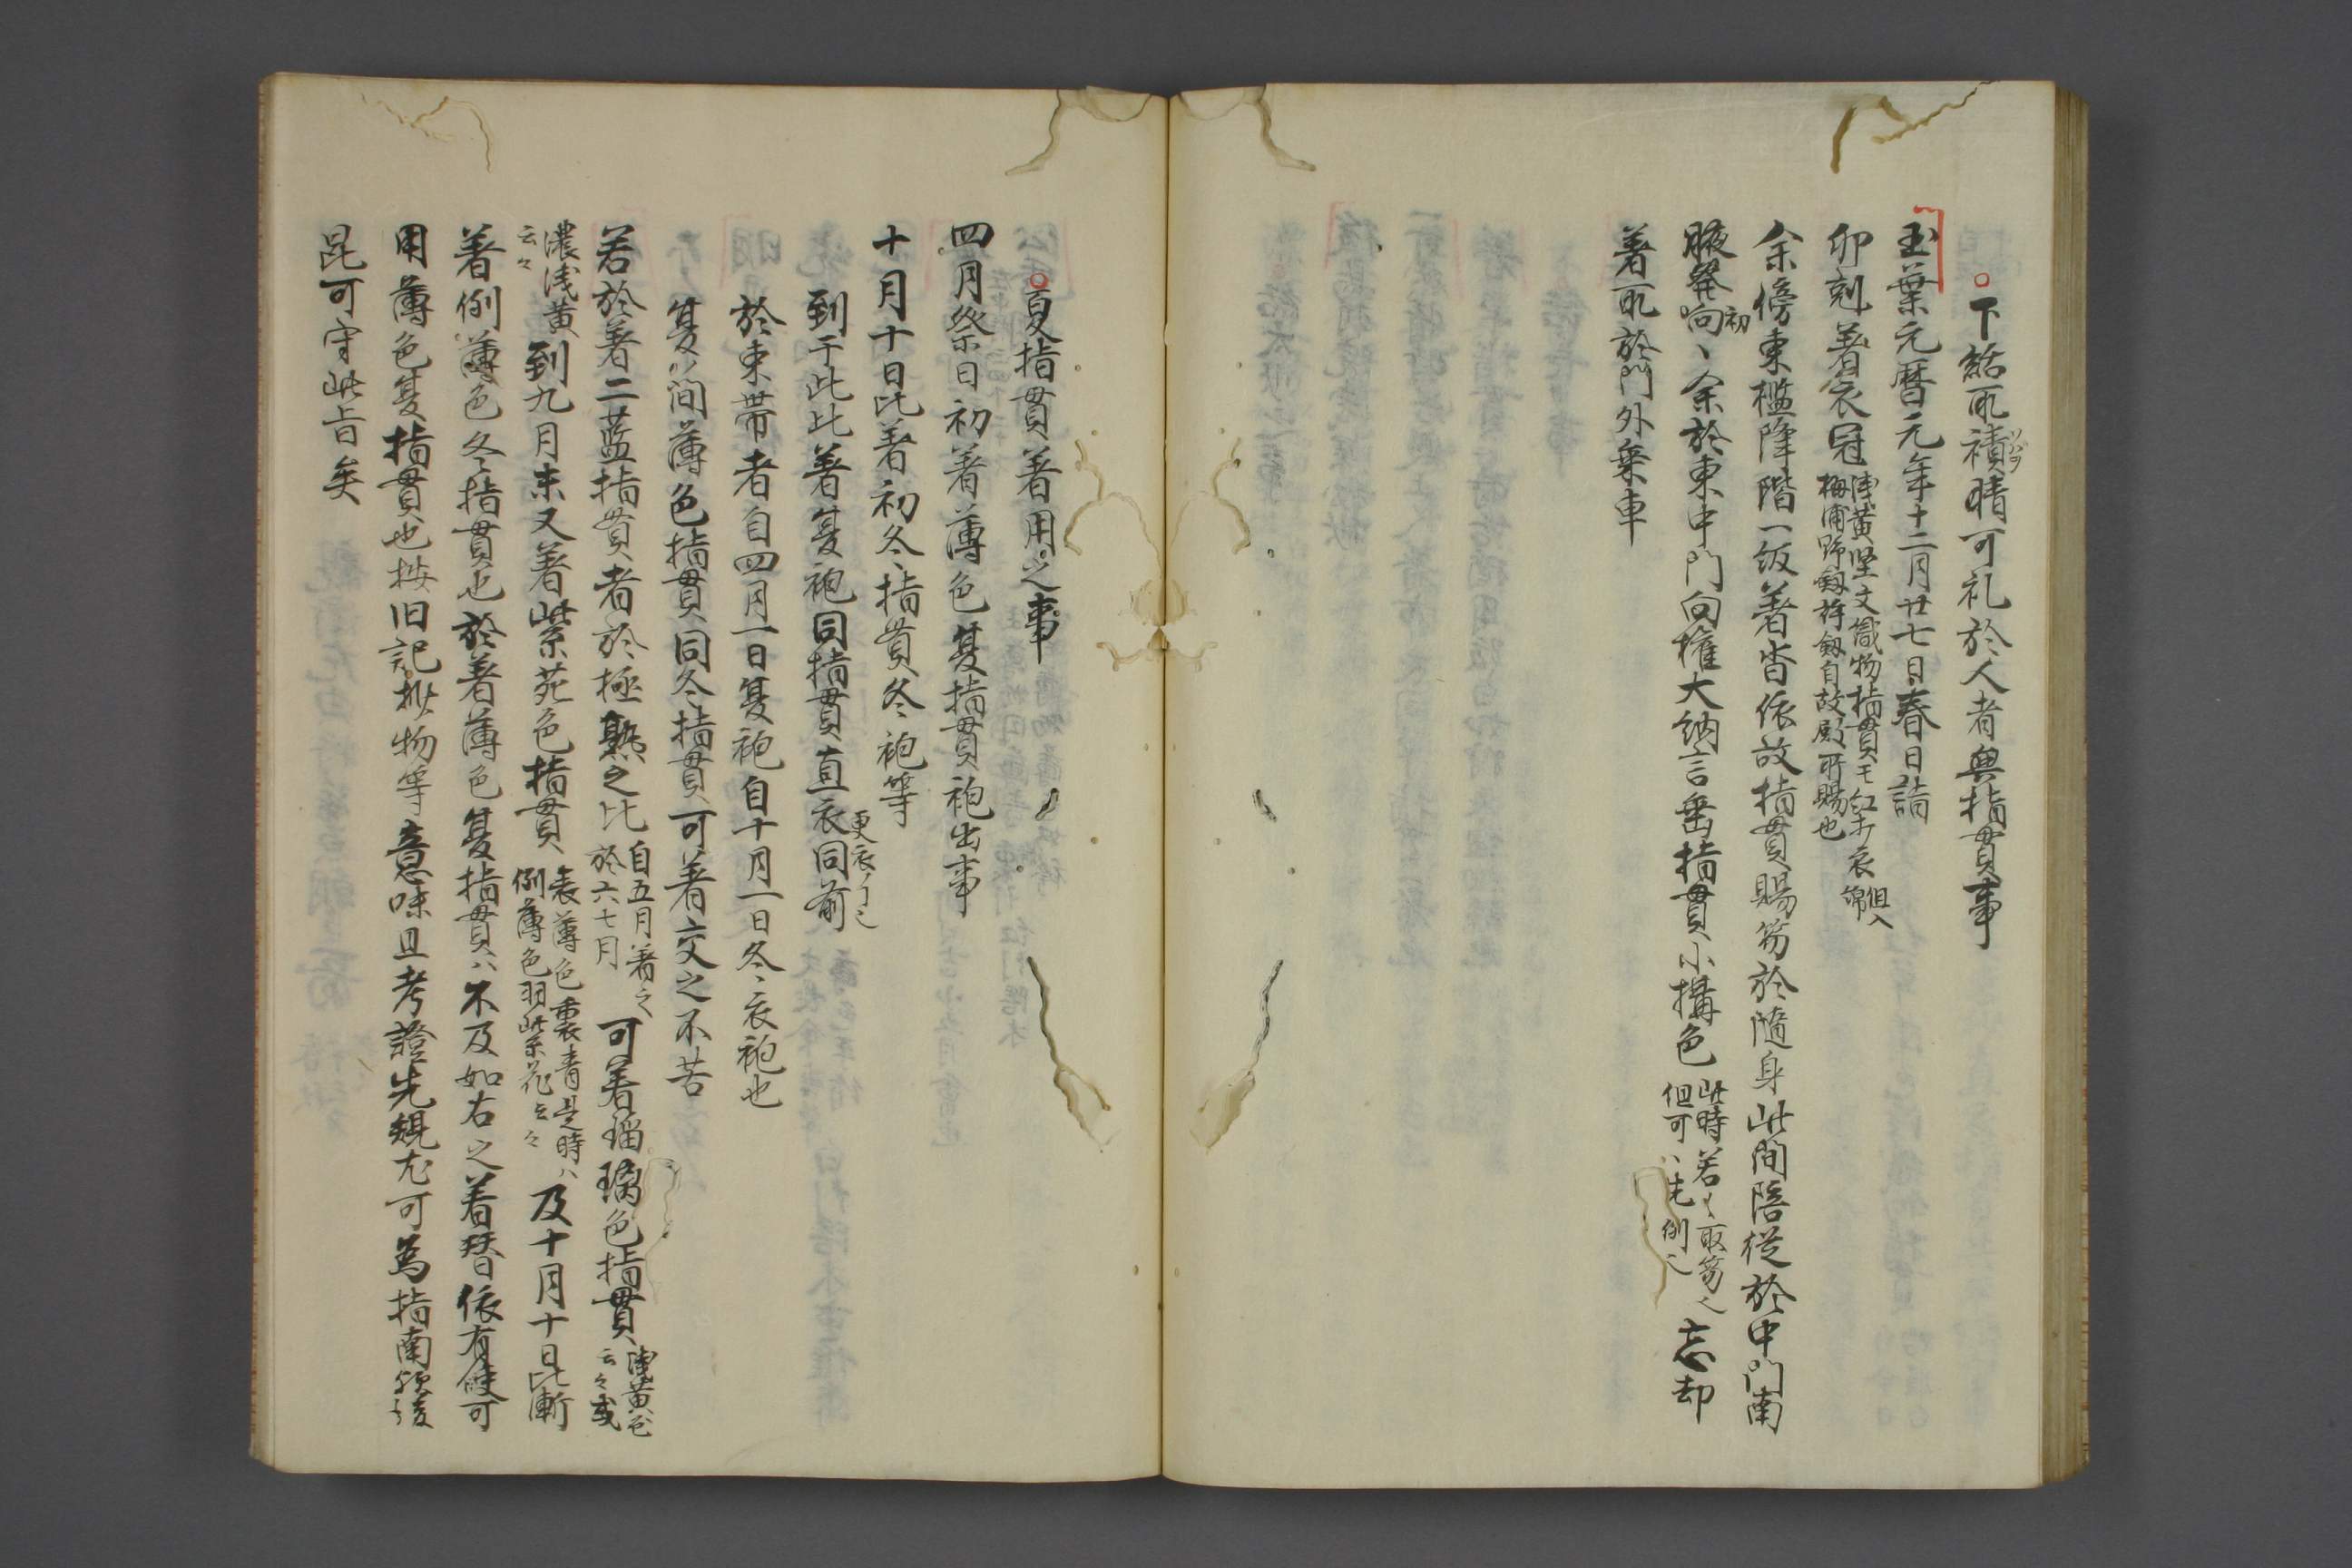 下結取襀時可礼於人者與指貫事
玉葉元暦元年十二月廿七日春日詣
卯剋著衣冠浅黄堅文織物指貫紅梅衣但入綿
野釼件釼自故殿所賜也
余傍東檻降階一級著沓依故指貫賜笏於随身此間陪従於中門南
腋發向余於東中門向権大納言垂指貫小揖色此時若可取笏忘却
但可例也
著取於門外乗車
夏指貫著用之事
四月祭日初著薄色夏指貫袍出事
十月十日比著初冬指貫冬袍等
到于此比著夏袍同指貫直衣同前
更衣
於束帯者自四月一日夏袍自十月一日冬衣袍也
夏ハ間薄色指貫同冬指貫可著交之不苦
若於著二藍指貫者於極熟之比自五月著之可著瑠璃色指貫浅黄色
於六七月
云々或
濃浅黄
云々
到九月末又著紫苑色指貫表薄色裏青是時ハ
例薄色羽紫花云々
及十月十日比漸
著例薄色冬指貫也於著薄色夏指貫ハ不及如右之著替依有煩可
用薄色夏指貫也按旧記抄物等意味且考證先規尤可為指南後
昆可守此旨矣